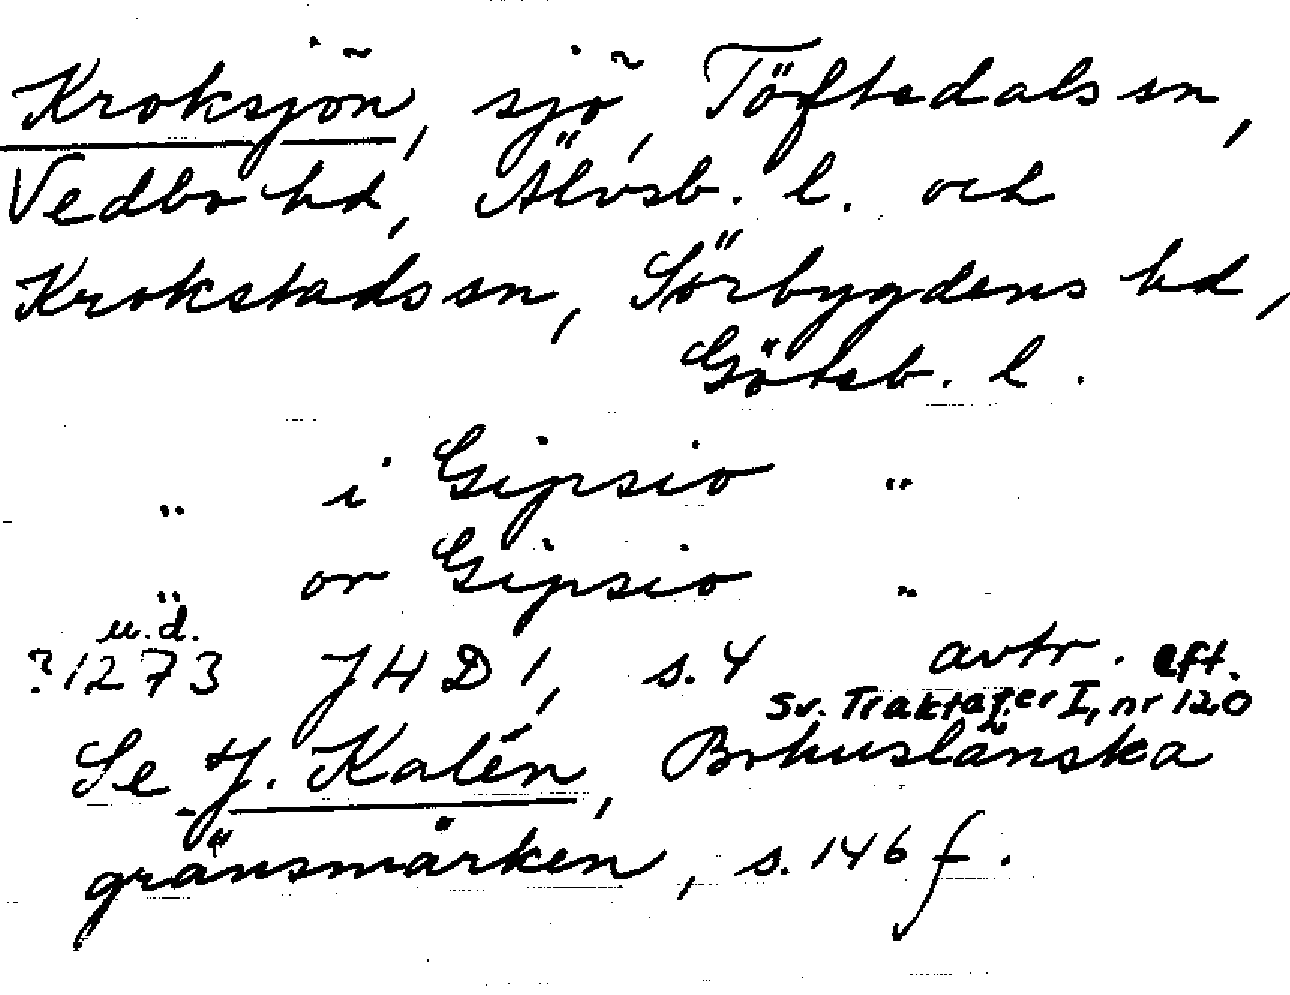 Kroksjön, sjö, Töftedals sn,
Vedbo hd, Älvsb. l. och
Krokstads sn, Sörbygdens hd,
Göteb. l.
" i Gipsio "
" or Gipsio "
u.d.
?1273 JHD 1, s. 4 avtr. eft.
Sv. Traktater I, nr 120
Se J. Kalén, Bohuslänska
gränsmärken, s. 146 f.